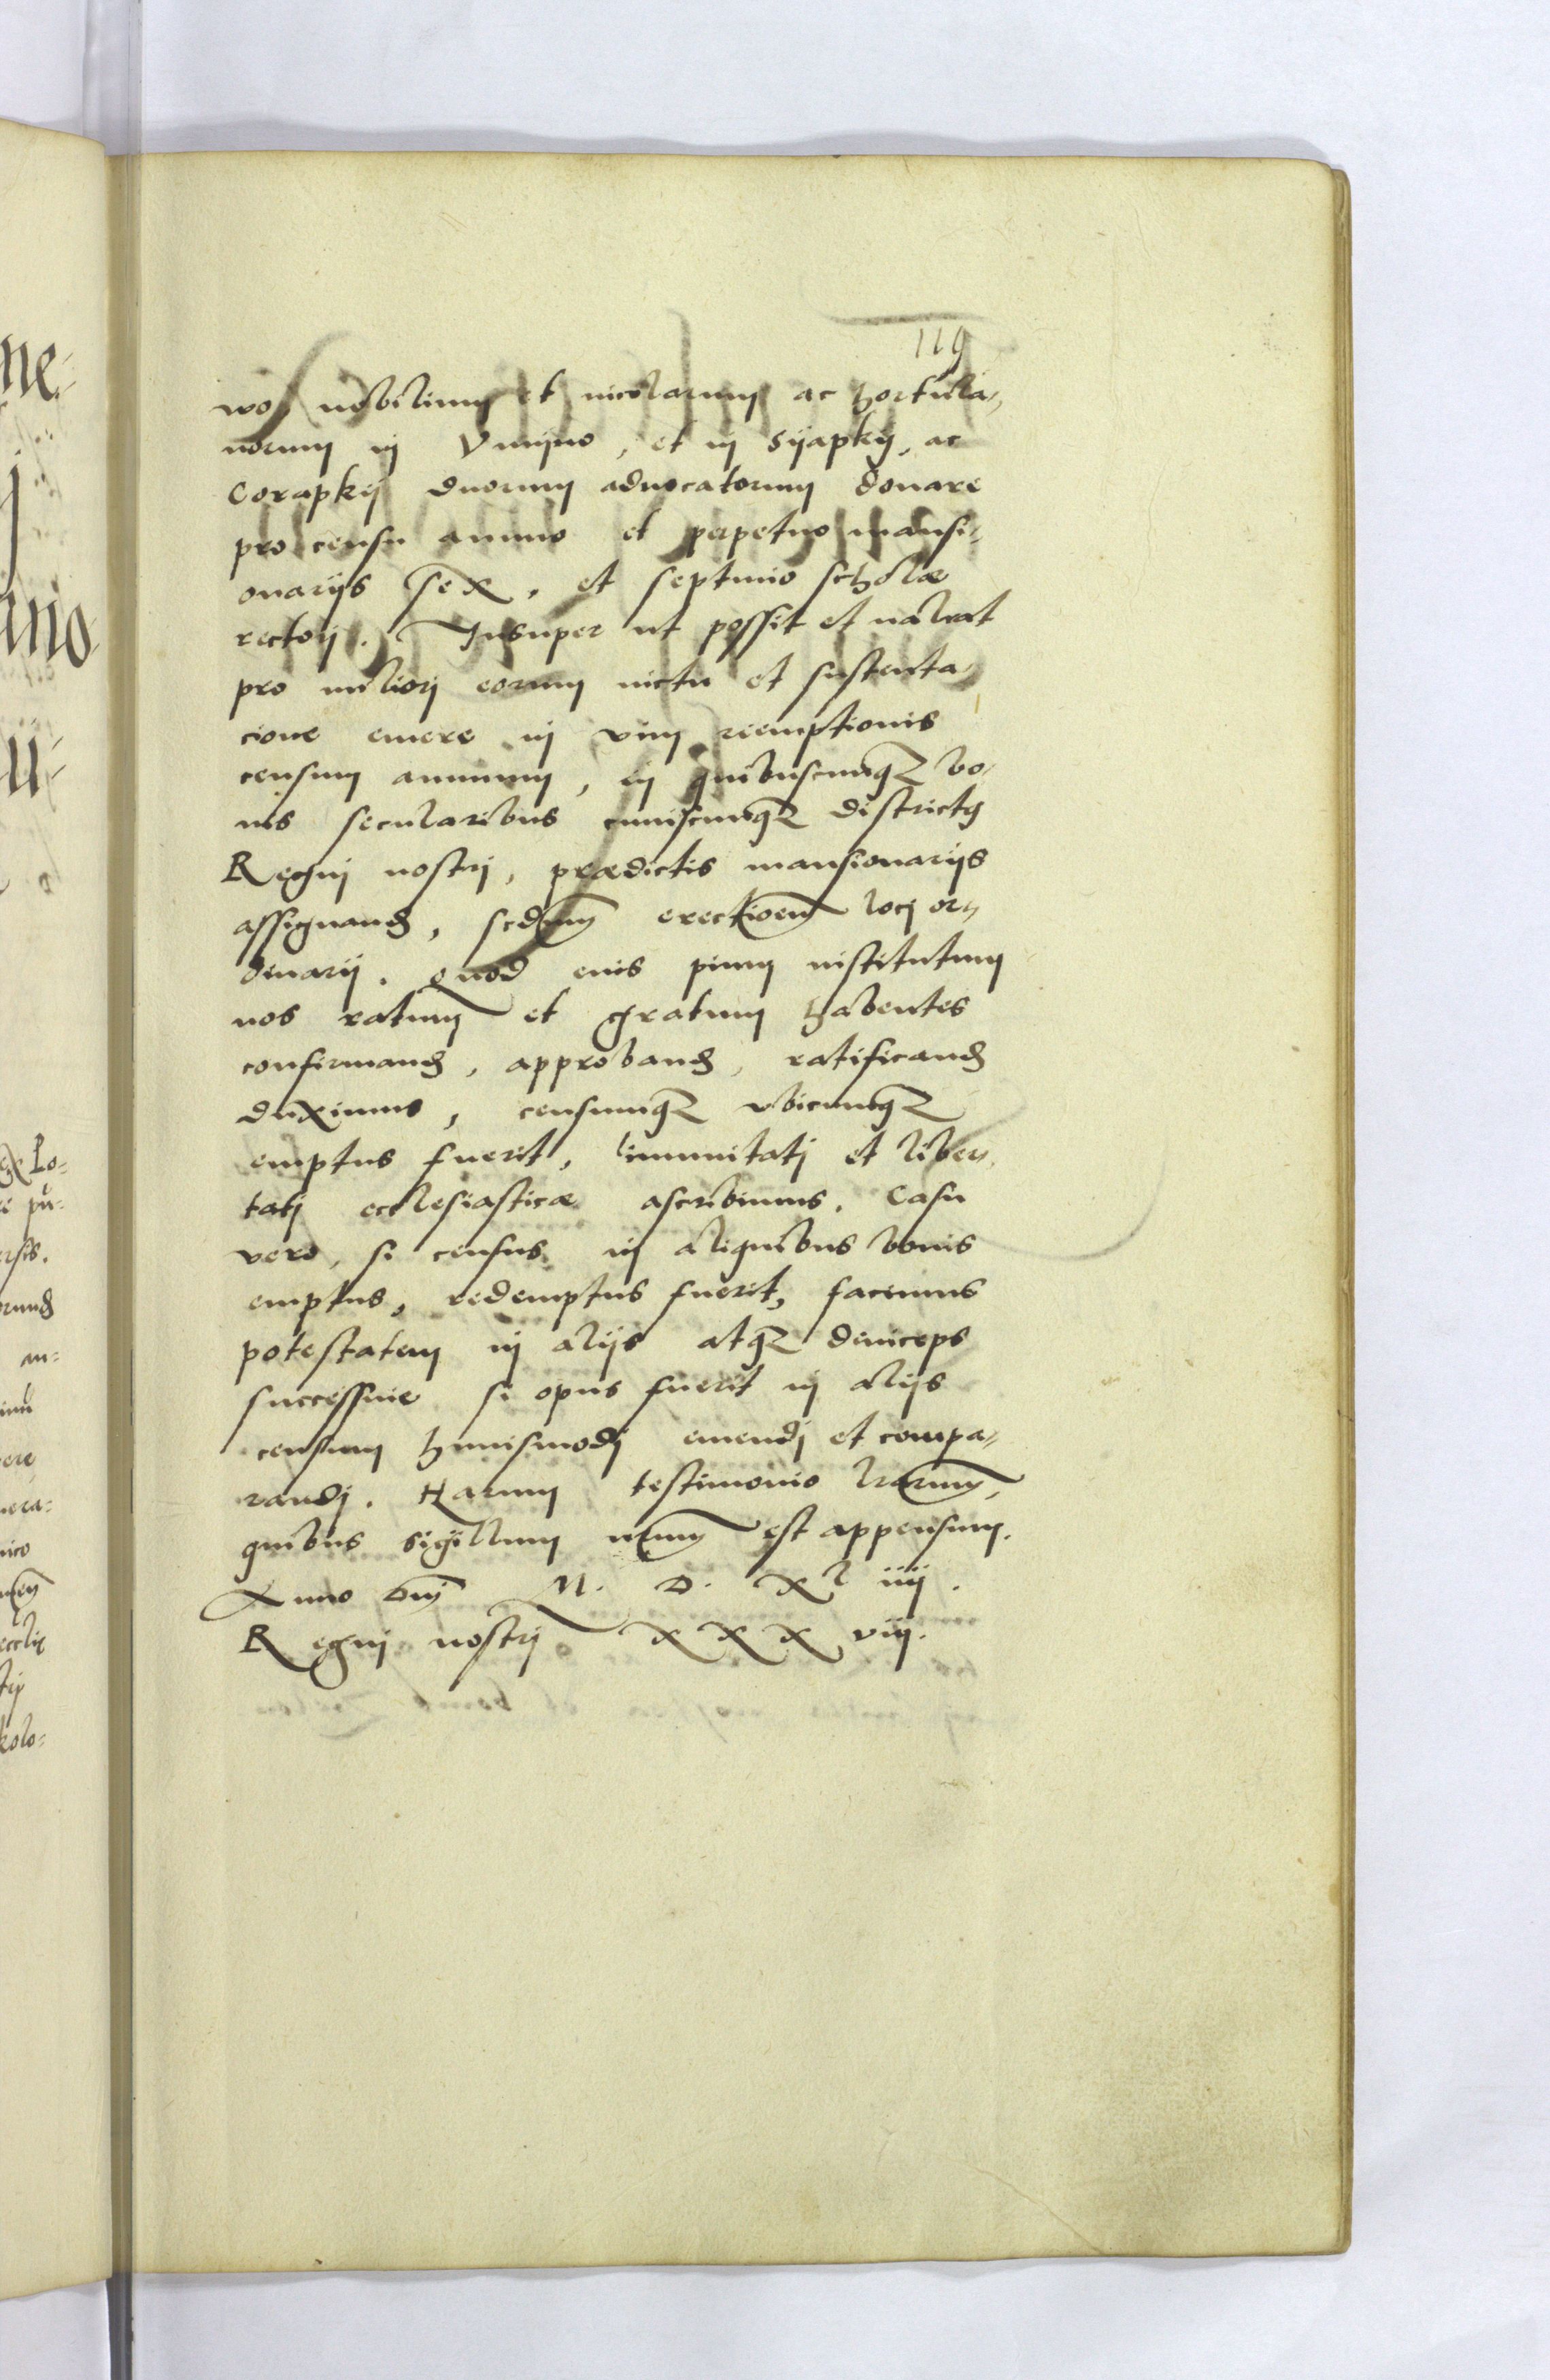 119
wo, nobilium et incolarum ac hortula=
norum in Vniino, et in Syapky, ac
Corapky duorum aduocatorum donare
pro censu annuo et perpetuo mansi=
onarijs sex, et septimo scholæ
rectorj. Insuper ut possit et ualeat
pro meliorj eorum uictu et sustenta=
cione emere in vim reemptionis
censum annuum, in quibuscumqꝫ bo=
nis secularibus cuiuscumqꝫ districtus
Regnj nostrj, prædictis mansionarijs
assignand, scdum erectioem locj or=
dinarij. Quod eius pium institutum
nos ratum et gratum habentes
confirmand, approband, ratificand
duximus, censumqꝫ vbicumqꝫ
emptus fuerit, immunitatj et liber=
tatj ecclesiasticæ ascribimus. Casu
vero, si census in aliquibus bonis
emptus, redemptus fuerit, facimus
potestatem in alijs atqꝫ deinceps
successiue si opus fuerit in alijs
censum huiusmodj emendj et compa=
randj. Harum testimonio lrarum,
quibus sigillum nrum est appensum.
Anno Dnj M. D. XL iiij.
Regnj nostrj XXX viij.